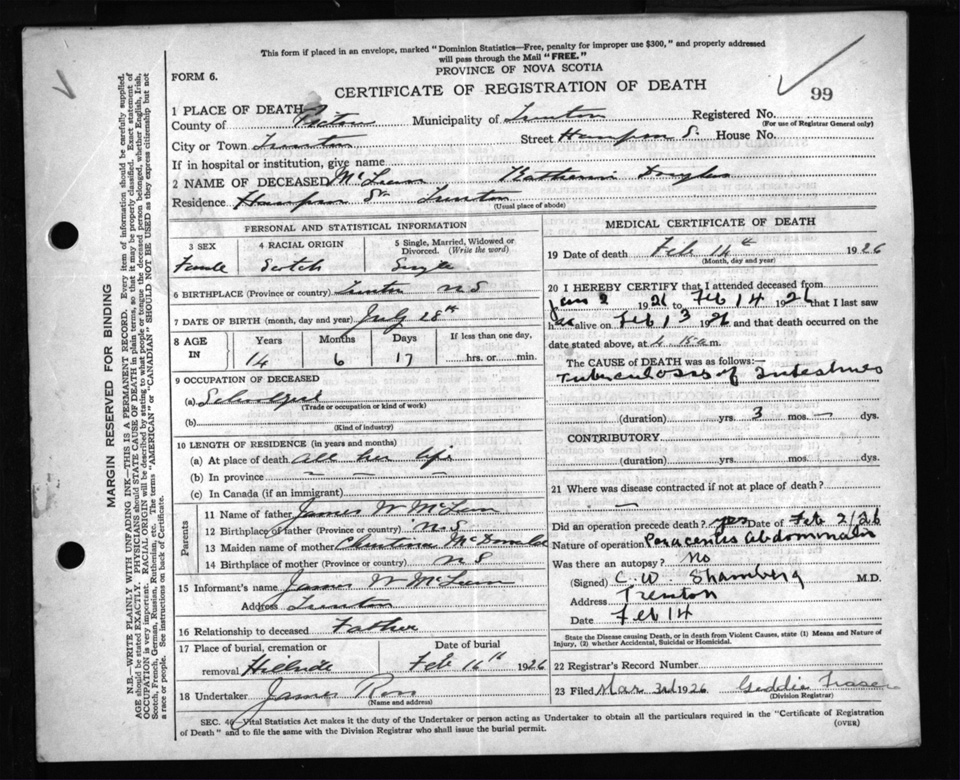 This form if placed in an envelope, marked "Dominion Statistics—Free, penalty for improper use $300," and properly addressed
will pass through the Mail "FREE."
FORM 6.
PROVINCE OF NOVA SCOTIA
CERTIFICATE OF REGISTRATION OF DEATH
99
1 PLACE OF DEATH
County of Pictou Municipality of Trenton Registered No.
(For use of Registrar General only)
City or Town Trenton Street House No.
If in hospital or institution, give name
2 NAME OF DECEASED McLean Katherine Douglas
Residence St Trenton
(Usual place of abode)
PERSONAL AND STATISTICAL INFORMATION
3 SEX 4 RACIAL ORIGIN 5 Single, Married, Widowed or
Divorced. (Write the word)
Female Scotch Single
6 BIRTHPLACE (Province or country) Trenton N S
7 DATE OF BIRTH (month, day and year) July 28th
8 AGE IN Years Months Days If less than one day,
14 6 17 hrs. or min.
9 OCCUPATION OF DECEASED
(a) Schoolgirl
(Trade or occupation or kind of work)
(b)
(Kind of industry)
10 LENGTH OF RESIDENCE (in years and months)
(a) At place of death all her life
(b) In province — — —
(c) In Canada (if an immigrant)
Parents
11 Name of father James W McLean
12 Birthplace of father (Province or country) N S
13 Maiden name of mother Christina McDonald
14 Birthplace of mother (Province or country) N S
15 Informant's name James W McLean
Address Trenton
16 Relationship to deceased Father
17 Place of burial, cremation or Date of burial
removal Hillside Feb 16th 1926
18 Undertaker James Ross
(Name and address)
MEDICAL CERTIFICATE OF DEATH
19 Date of death Feb 14th 1926
(Month, day and year)
20 I HEREBY CERTIFY that I attended deceased from
Jan 2 1926 to Feb 14 1926 that I last saw
her alive on Feb 13 1926 and that death occurred on the
date stated above, at a.m.
The CAUSE OF DEATH was as follows:—
Tuberculosis of Intestines
(duration) yrs. 3 mos. — dys.
CONTRIBUTORY
(duration) yrs. mos. dys.
21 Where was disease contracted if not at place of death?
—
Did an operation precede death? yes Date of Feb 2/26
Nature of operation Paracentis Abdominalis
Was there an autopsy? No
(Signed) C. W. Shamberg M.D.
Address Trenton
Date Feb 14
State the Disease causing Death, or in death from Violent Causes, state (1) Means and Nature of
Injury, (2) whether Accidental, Suicidal or Homicidal.
22 Registrar's Record Number
23 Filed Mar 3rd 1926 Geddie Fraser
(Division Registrar)
SEC. 40—Vital Statistics Act makes it the duty of the Undertaker or person acting as Undertaker to obtain all the particulars required in the "Certificate of Registration
of Death" and to file the same with the Division Registrar who shall issue the burial permit.
(OVER)
MARGIN RESERVED FOR BINDING
N.B.—WRITE PLAINLY WITH UNFADING INK—THIS IS A PERMANENT RECORD. Every item of information should be carefully supplied.
AGE should be stated EXACTLY. PHYSICIANS should STATE CAUSE OF DEATH in plain terms, so that it may be properly classified. Exact statement of
OCCUPATION is very important. RACIAL ORIGIN will be described by stating to what people or tongue the deceased person belonged, whether English, Irish,
Scotch, French, German, Russian, Ruthenian, etc. The terms "AMERICAN" or "CANADIAN" SHOULD NOT BE USED as they express citizenship but not
a race or people. See instructions on back of Certificate.